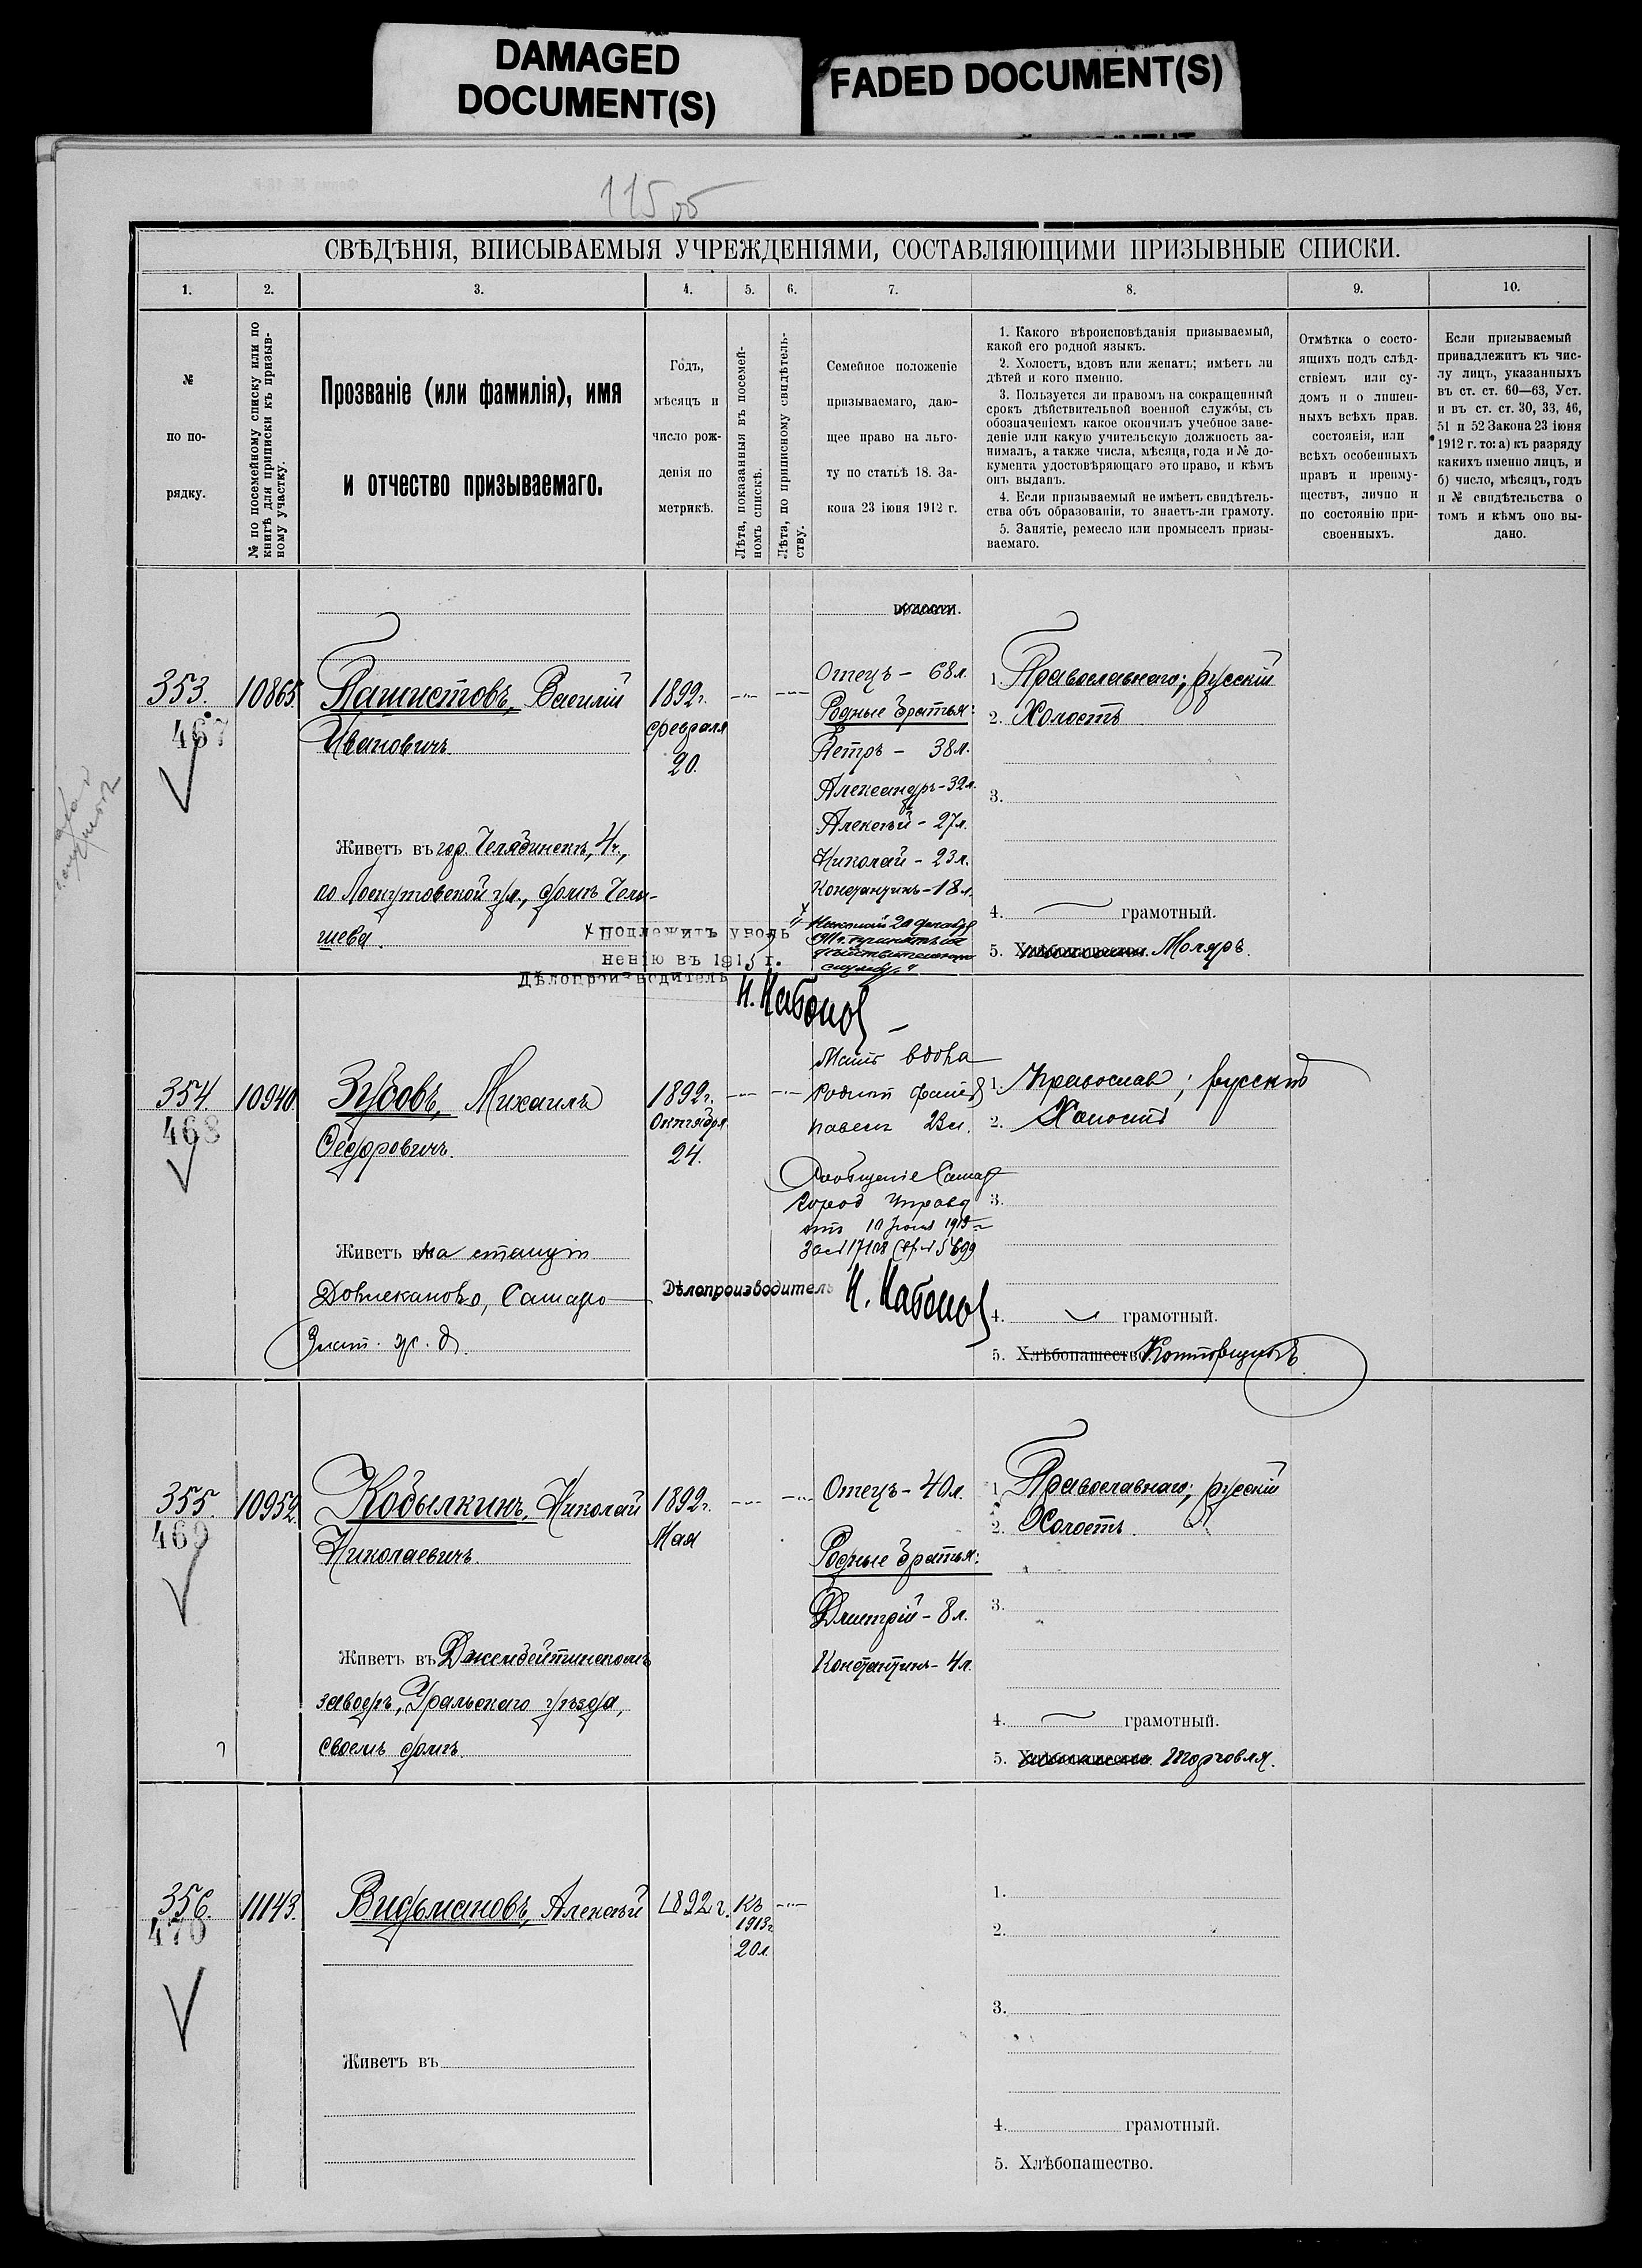 DAMAGED
DOCUMENT(S)
FADED DOCUMENT(S)
115 об
СВѢДѢНІЯ, ВПИСЫВАЕМЫЯ УЧРЕЖДЕНІЯМИ, СОСТАВЛЯЮЩИМИ ПРИЗЫВНЫЕ СПИСКИ.
1.
2.
3.
4.
5.
6.
7.
8.
9.
10.
№
по по-
рядку.
№ по посемейному списку или по
книгѣ для приписки къ призыв-
ному участку.
Прозваніе (или фамилія), имя
и отчество призываемаго.
Годъ,
мѣсяцъ и
число рож-
денія по
метрикѣ.
Лѣта, показанныя въ посемей-
номъ спискѣ.
Лѣта, по приписному свидѣтель-
ству.
Семейное положеніе
призываемаго, даю-
щее право на льго-
ту по статьѣ 18. За-
кона 23 іюня 1912 г.
1. Какого вѣроисповѣданія призываемый,
какой его родной языкъ.
2. Холостъ, вдовъ или женатъ; имѣетъ ли
дѣтей и кого именно.
3. Пользуется ли правомъ на сокращенный
срокъ дѣйствительной военной службы, съ
обозначеніемъ какое окончилъ учебное заве-
деніе или какую учительскую должность за-
нималъ, а также числа, мѣсяца, года и № до-
кумента удостовѣряющаго это право, и кѣмъ
онъ выданъ.
4. Если призываемый не имѣетъ свидѣтель-
ства объ образованіи, то знаетъ-ли грамоту.
5. Занятіе, ремесло или промыселъ призы-
ваемаго.
Отмѣтка о состо-
ящихъ подъ слѣд-
ствіемъ или су-
домъ и о лишен-
ныхъ всѣхъ прав.
состоянія, или
всѣхъ особенныхъ
правъ и преиму-
ществъ, лично и
по состоянію при-
своенныхъ.
Если призываемый
принадлежитъ къ чис-
лу лицъ, указанныхъ
въ ст. ст. 60—63, Уст.
и въ ст. ст. 30, 33, 46,
51 и 52 Закона 23 іюня
1912 г. то: а) къ разряду
какихъ именно лицъ, и
б) число, мѣсяцъ, годъ
и № свидѣтельства о
томъ и кѣмъ оно вы-
дано.
волости.
353.
467
10865.
Пашистовъ, Василій
Ивановичъ.
Живетъ въ гор. Челябинскѣ, 4ч.,
по Лоскутовской ул., домъ Челы-
шева.
1892г.
февраля
20.
Отецъ – 68л.
Родные братья:
Петръ – 38л.
Александръ – 32л.
Алексѣй – 27л.
Николай – 23л.
Константинъ – 18л.
Николай 20 декабря
1911г. принятъ на
дѣйствительную
службу
Подлежитъ уволь
ненію въ 1915 г.
Дѣлопроизводитель
1. Православнаго; русскій
2. Холостъ
3.
4. грамотный.
5. Хлѣбопашество. Моляръ.
354
468
10940.
Зубовъ, Михаилъ
Ѳедоровичъ.
Живетъ въ на станціи
Довлеканово, Самаро
Злат. ж. д.
1892г.
Октября
24.
Мать вдова
Родной братъ
Павелъ 23л.
Сообщеніе Самар
город управы
Дѣлопроизводитель
1. Православ; русскій
2. Холостъ
3.
4. грамотный.
5. Хлѣбопашество. Конторщикъ.
355.
469
10952.
Кобылкинъ, Николай
Николаевичъ.
Живетъ въ Джембейтинскомъ
заводѣ, Уральскаго уѣзда,
своемъ домѣ.
1892г.
Мая
Отецъ – 40л.
Родные братья:
Дмитрій – 8л.
Константинъ – 4л.
1. Православнаго; русскій
2. Холостъ.
3.
4. грамотный.
5. Хлѣбопашество. Торговля.
356.
470
11143.
Видьмановъ, Алексѣй
Живетъ въ
1892г.
Къ
1913г
20л.
1.
2.
3.
4. грамотный.
5. Хлѣбопашество.